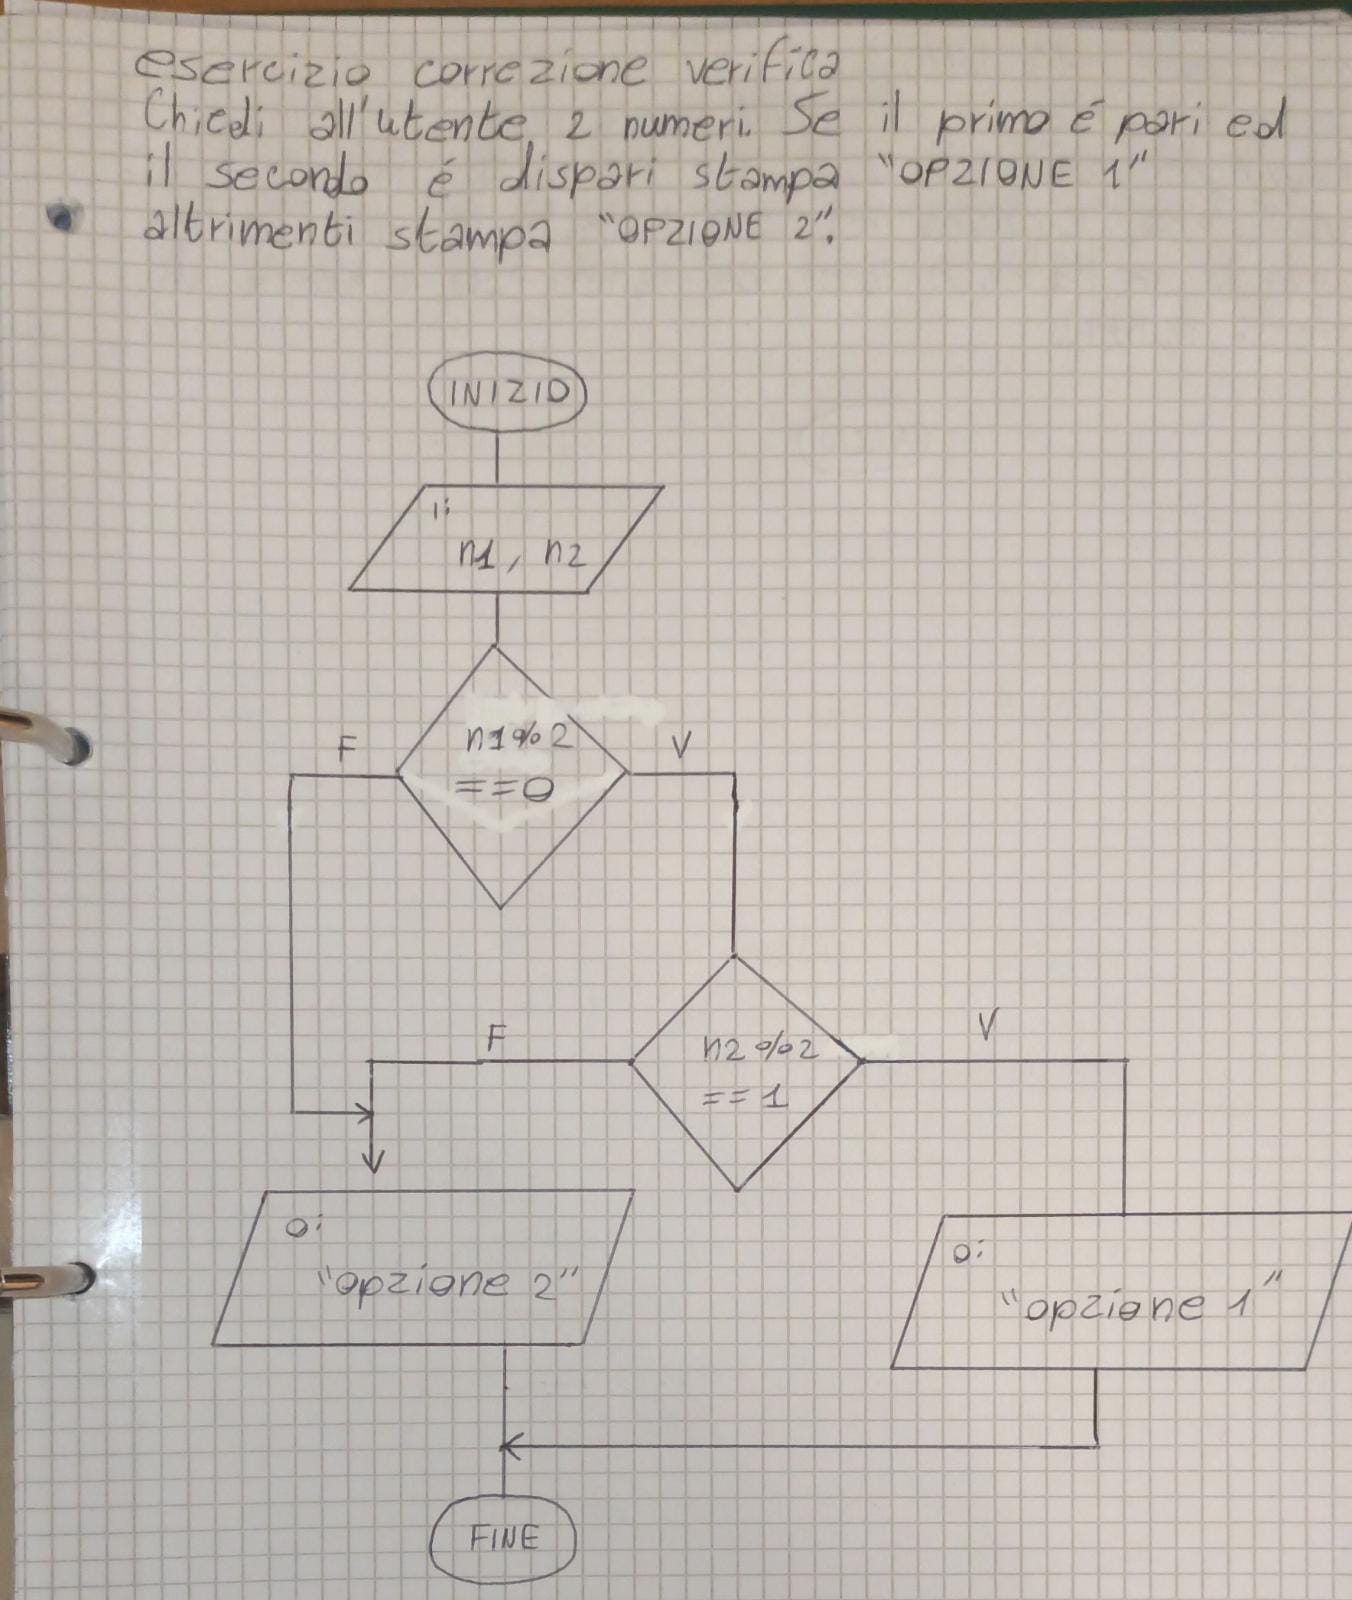 esercizio correzione verifica
Chiedi all'utente 2 numeri. Se il primo é pari ed
il secondo é dispari stampa "OPZIONE 1"
altrimenti stampa "OPZIONE 2".
INIZIO
i:
n1, n2
n1%2
==0
F
V
n2%2
==1
F
V
o:
"opzione 2"
o:
"opzione 1"
FINE